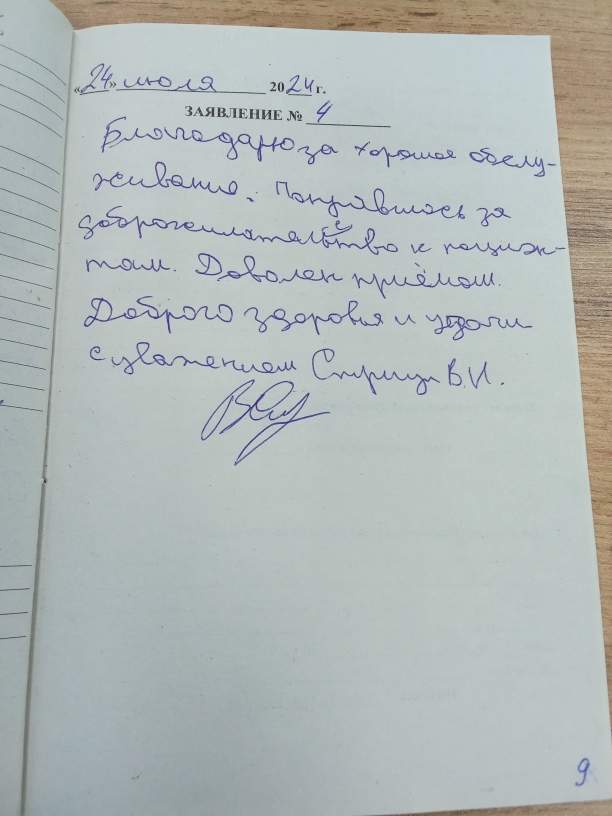 «24» июля 2024 г.
ЗАЯВЛЕНИЕ № 4
Благодарю за хорошое обслу-
живание. Понравилось за
доброжелательство к пациэн-
там. Доволен приёмом.
Доброго здоровья и удачи
с уважением В.И.
9